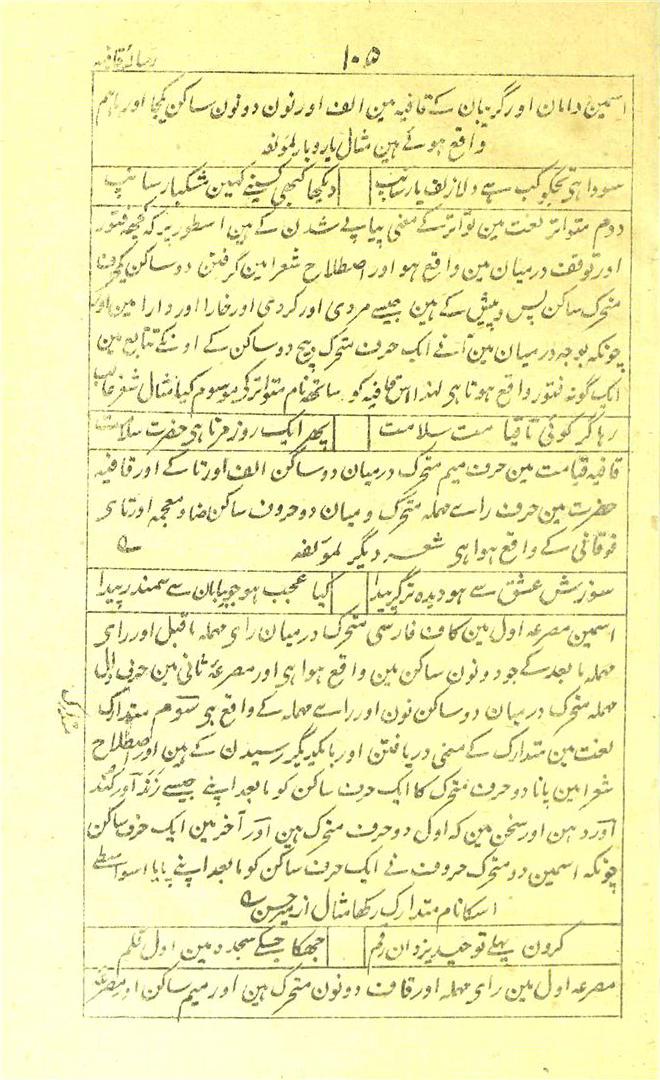 ۱۰۵ رسالۂ قافیہ
اسمین دامان اور گریبان کے قافیہ مین الف اور نون دونون ساکن یکجا اور باہم
واقع ہوئے ہین مثال یار و یار لمؤلفہ
سودا ہی تجکو کب سے دلا زلف یار سانپ دیکھا کبھی کسینے کہین مشکبار سانپ
دوم متواتر لغت مین تواتر کے معنی پیاپے شدن کے ہین اسطور پر کہ کچھ فتور
اور توقف درمیان مین واقع ہو اور اصطلاح شعرا مین گرفتن دو ساکن یکحرف
متحرک ساکن پس و پیش کے ہین جیسے مردی اور کردی اور خارا اور دارا مین اور
چونکہ بوجہ درمیان مین آنے ایک حرف متحرک بیچ دو ساکن کے اونکے تتابع مین
ایک گونہ فتور واقع ہوتا ہی لہذا اس قافیہ کو ساتھ نام متواتر کی موسوم کیا مثال شعر غالب
رہا گر کوئی تا قیامت سلامت پھر ایک روز مرنا ہی حضرت سلامت
قافیہ قیامت مین حرف میم متحرک درمیان دو ساکن الف اور تا کے اور قافیہ
حضرت مین حرف راے مہملہ متحرک درمیان دو حروف ساکن ضاد معجمہ اور تای
فوقانی کے واقع ہوا ہی شعر دیگر لمؤلفہ
سوزش عشق سے ہو دیدہ تر گر پیدا کیا عجب ہو جو یہان سے سمندر پیدا
اسمین مصرعہ اول مین کاف فارسی متحرک درمیان رای مہملہ ماقبل اور رای
مہملہ مابعد کے جو دونون ساکن ہین واقع ہوا ہی اور مصرعہ ثانی مین حرف دال
مہملہ متحرک درمیان دو ساکن نون اور راے مہملہ کے واقع ہی سوم متدارک
متدارک
لغت مین متدارک کے معنی دریافتن اور بایکدیگر رسیدن کے ہین اور اصطلاح
شعرا مین پانا دو حرف متحرک کا ایک حرف ساکن کو مابعد اپنے جیسے زند اور کند
اور دہن اور سخن مین کہ اول دو حرف متحرک ہین اور آخر مین ایک حرف ساکن
چونکہ اسمین دو متحرک حروف نے ایک حرف ساکن کو مابعد اپنے پایا اسواسطے
اسکا نام متدارک رکھا مثال از میر حسن
کرون پہلے توحید یزدان رقم جھکا جسکے سجدہ مین اول قلم
مصرعہ اول مین رای مہملہ اور قاف دونون متحرک ہین اور میم ساکن اور مصرعہ